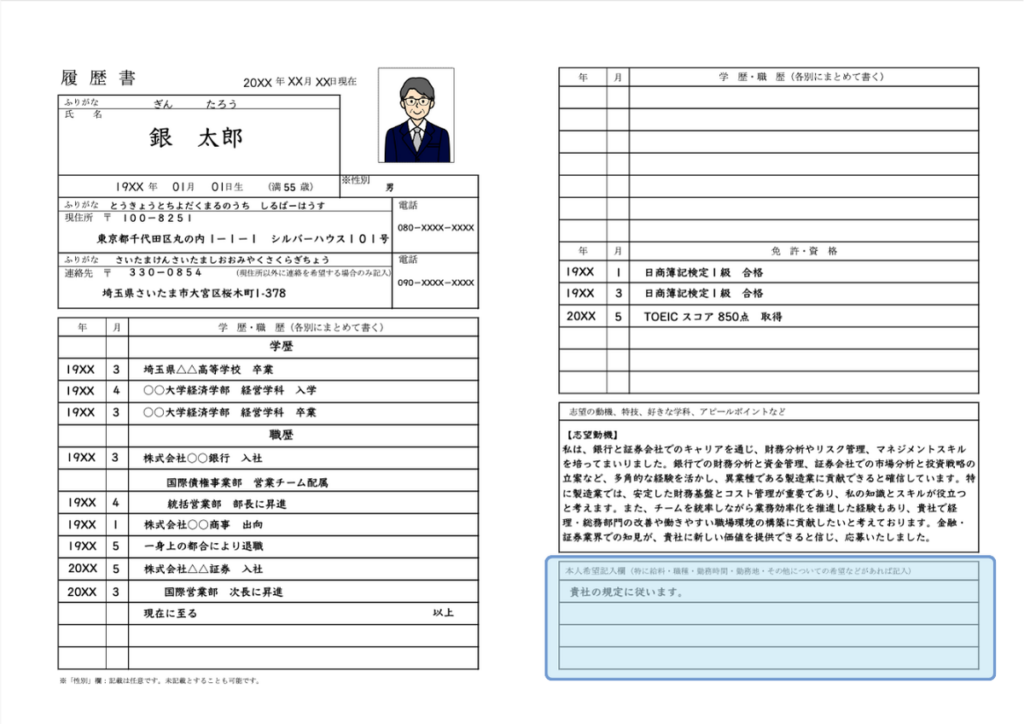 履 歴 書
20XX 年 XX月 XX日現在
ふりがな ぎん たろう
氏 名
銀 太郎
※性別
19XX 年 01月 01日生 (満 55 歳) 男
ふりがな とうきょうとちよだくまるのうち しるばーはうす
電話
現住所 〒 100-8251
080-XXXX-XXXX
東京都千代田区丸の内 1-1-1 シルバーハウス101号
ふりがな さいたまけんさいたましおおみやくさくらぎちょう
電話
連絡先 〒 330-0854 (現住所以外に連絡を希望する場合のみ記入)
090-XXXX-XXXX
埼玉県さいたま市大宮区桜木町1-378
年 月 学 歴・職 歴 (各別にまとめて書く)
学歴
19XX 3 埼玉県△△高等学校 卒業
19XX 4 〇〇大学経済学部 経営学科 入学
19XX 3 〇〇大学経済学部 経営学科 卒業
職歴
19XX 3 株式会社〇〇銀行 入社
国際債権事業部 営業チーム配属
19XX 4 統括営業部 部長に昇進
19XX 1 株式会社〇〇商事 出向
19XX 5 一身上の都合により退職
20XX 5 株式会社△△証券 入社
20XX 3 国際営業部 次長に昇進
現在に至る 以上
※「性別」欄:記載は任意です。未記載とすることも可能です。
年 月 学 歴・職 歴 (各別にまとめて書く)
年 月 免 許・資 格
19XX 1 日商簿記検定1級 合格
19XX 3 日商簿記検定1級 合格
20XX 5 TOEIC スコア 850点 取得
志望の動機、特技、好きな学科、アピールポイントなど
【志望動機】
私は、銀行と証券会社でのキャリアを通じ、財務分析やリスク管理、マネジメントスキル
を培ってまいりました。銀行での財務分析と資金管理、証券会社での市場分析と投資戦略の
立案など、多角的な経験を活かし、異業種である製造業に貢献できると確信しています。特
に製造業では、安定した財務基盤とコスト管理が重要であり、私の知識とスキルが役立つ
と考えます。また、チームを統率しながら業務効率化を推進した経験もあり、貴社で経
理・総務部門の改善や働きやすい職場環境の構築に貢献したいと考えております。金融・
証券業界での知見が、貴社に新しい価値を提供できると信じ、応募いたしました。
本人希望記入欄 (特に給料・職種・勤務時間・勤務地・その他についての希望などがあれば記入)
貴社の規定に従います。